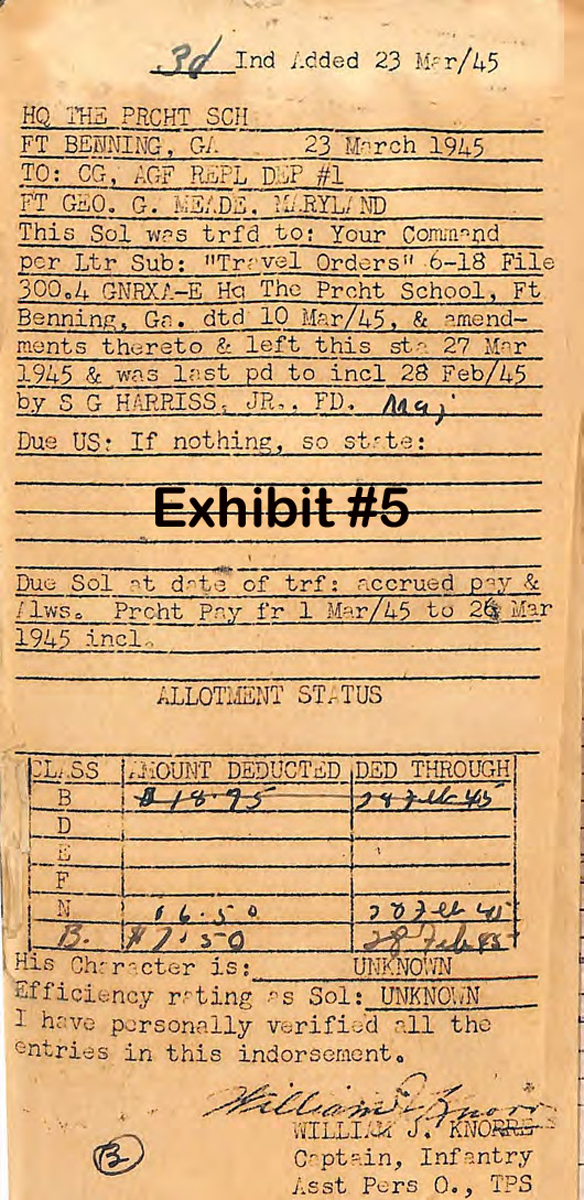 3d Ind Added 23 Mar/45
HQ THE PRCHT SCH
FT BENNING, GA 23 March 1945
TO: CG, AGF REPL DEP #1
FT GEO. G. MEADE, MARYLAND
This Sol was trfd to: Your Command
per Ltr Sub: "Travel Orders" 6-18 File
300.4 GNRXA-E Hq The Prcht School, Ft
Benning, Ga. dtd 10 Mar/45, & amend-
ments thereto & left this sta 27 Mar
1945 & was last pd to incl 28 Feb/45
by S G HARRISS, JR., FD. Maj
Due US: If nothing, so state:
Exhibit #5
Due Sol at date of trf: accrued pay &
Alws. Prcht Pay fr 1 Mar/45 to 26 Mar
1945 incl.
ALLOTMENT STATUS
CLASS AMOUNT DEDUCTED DED THROUGH
B $18.75 28 Feb 45
D
E
F
N $6.50 28 Feb 45
B. $7.50 28 Feb 45
His Character is: UNKNOWN
Efficiency rating as Sol: UNKNOWN
I have personally verified all the
entries in this indorsement.
William J. Knorr
WILLIAM J. KNORRE
Captain, Infantry
Asst Pers O., TPS
B